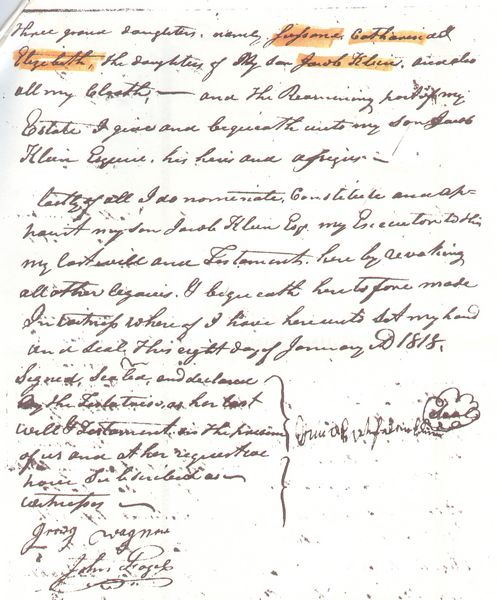 three grand daughters, namely Susanna, Catharina and
Elizabeth, the daughters of My son Jacob Klein, and also
all my Cloath, — and the Remaining part of my
Estate I give and bequeath unto my son Jacob
Klein Esquire, his heirs and assigns. —
lastly of all I do nominate, Constitute and ap-
point my son Jacob Klein Esq. my Executor to this
my last will and Testament, here by revoking
all other legacies. I bequeath here to fore made
In witness where of I have hereunto set my hand
and seal, This eight day of January AD 1818.
Signed, Sealed, and declared
by the Testatrix, as her last
will & Testament in the presence
of us and at her request we
have Subscribed as
witnesses —
Georg Wagner
John Fogel
Seal